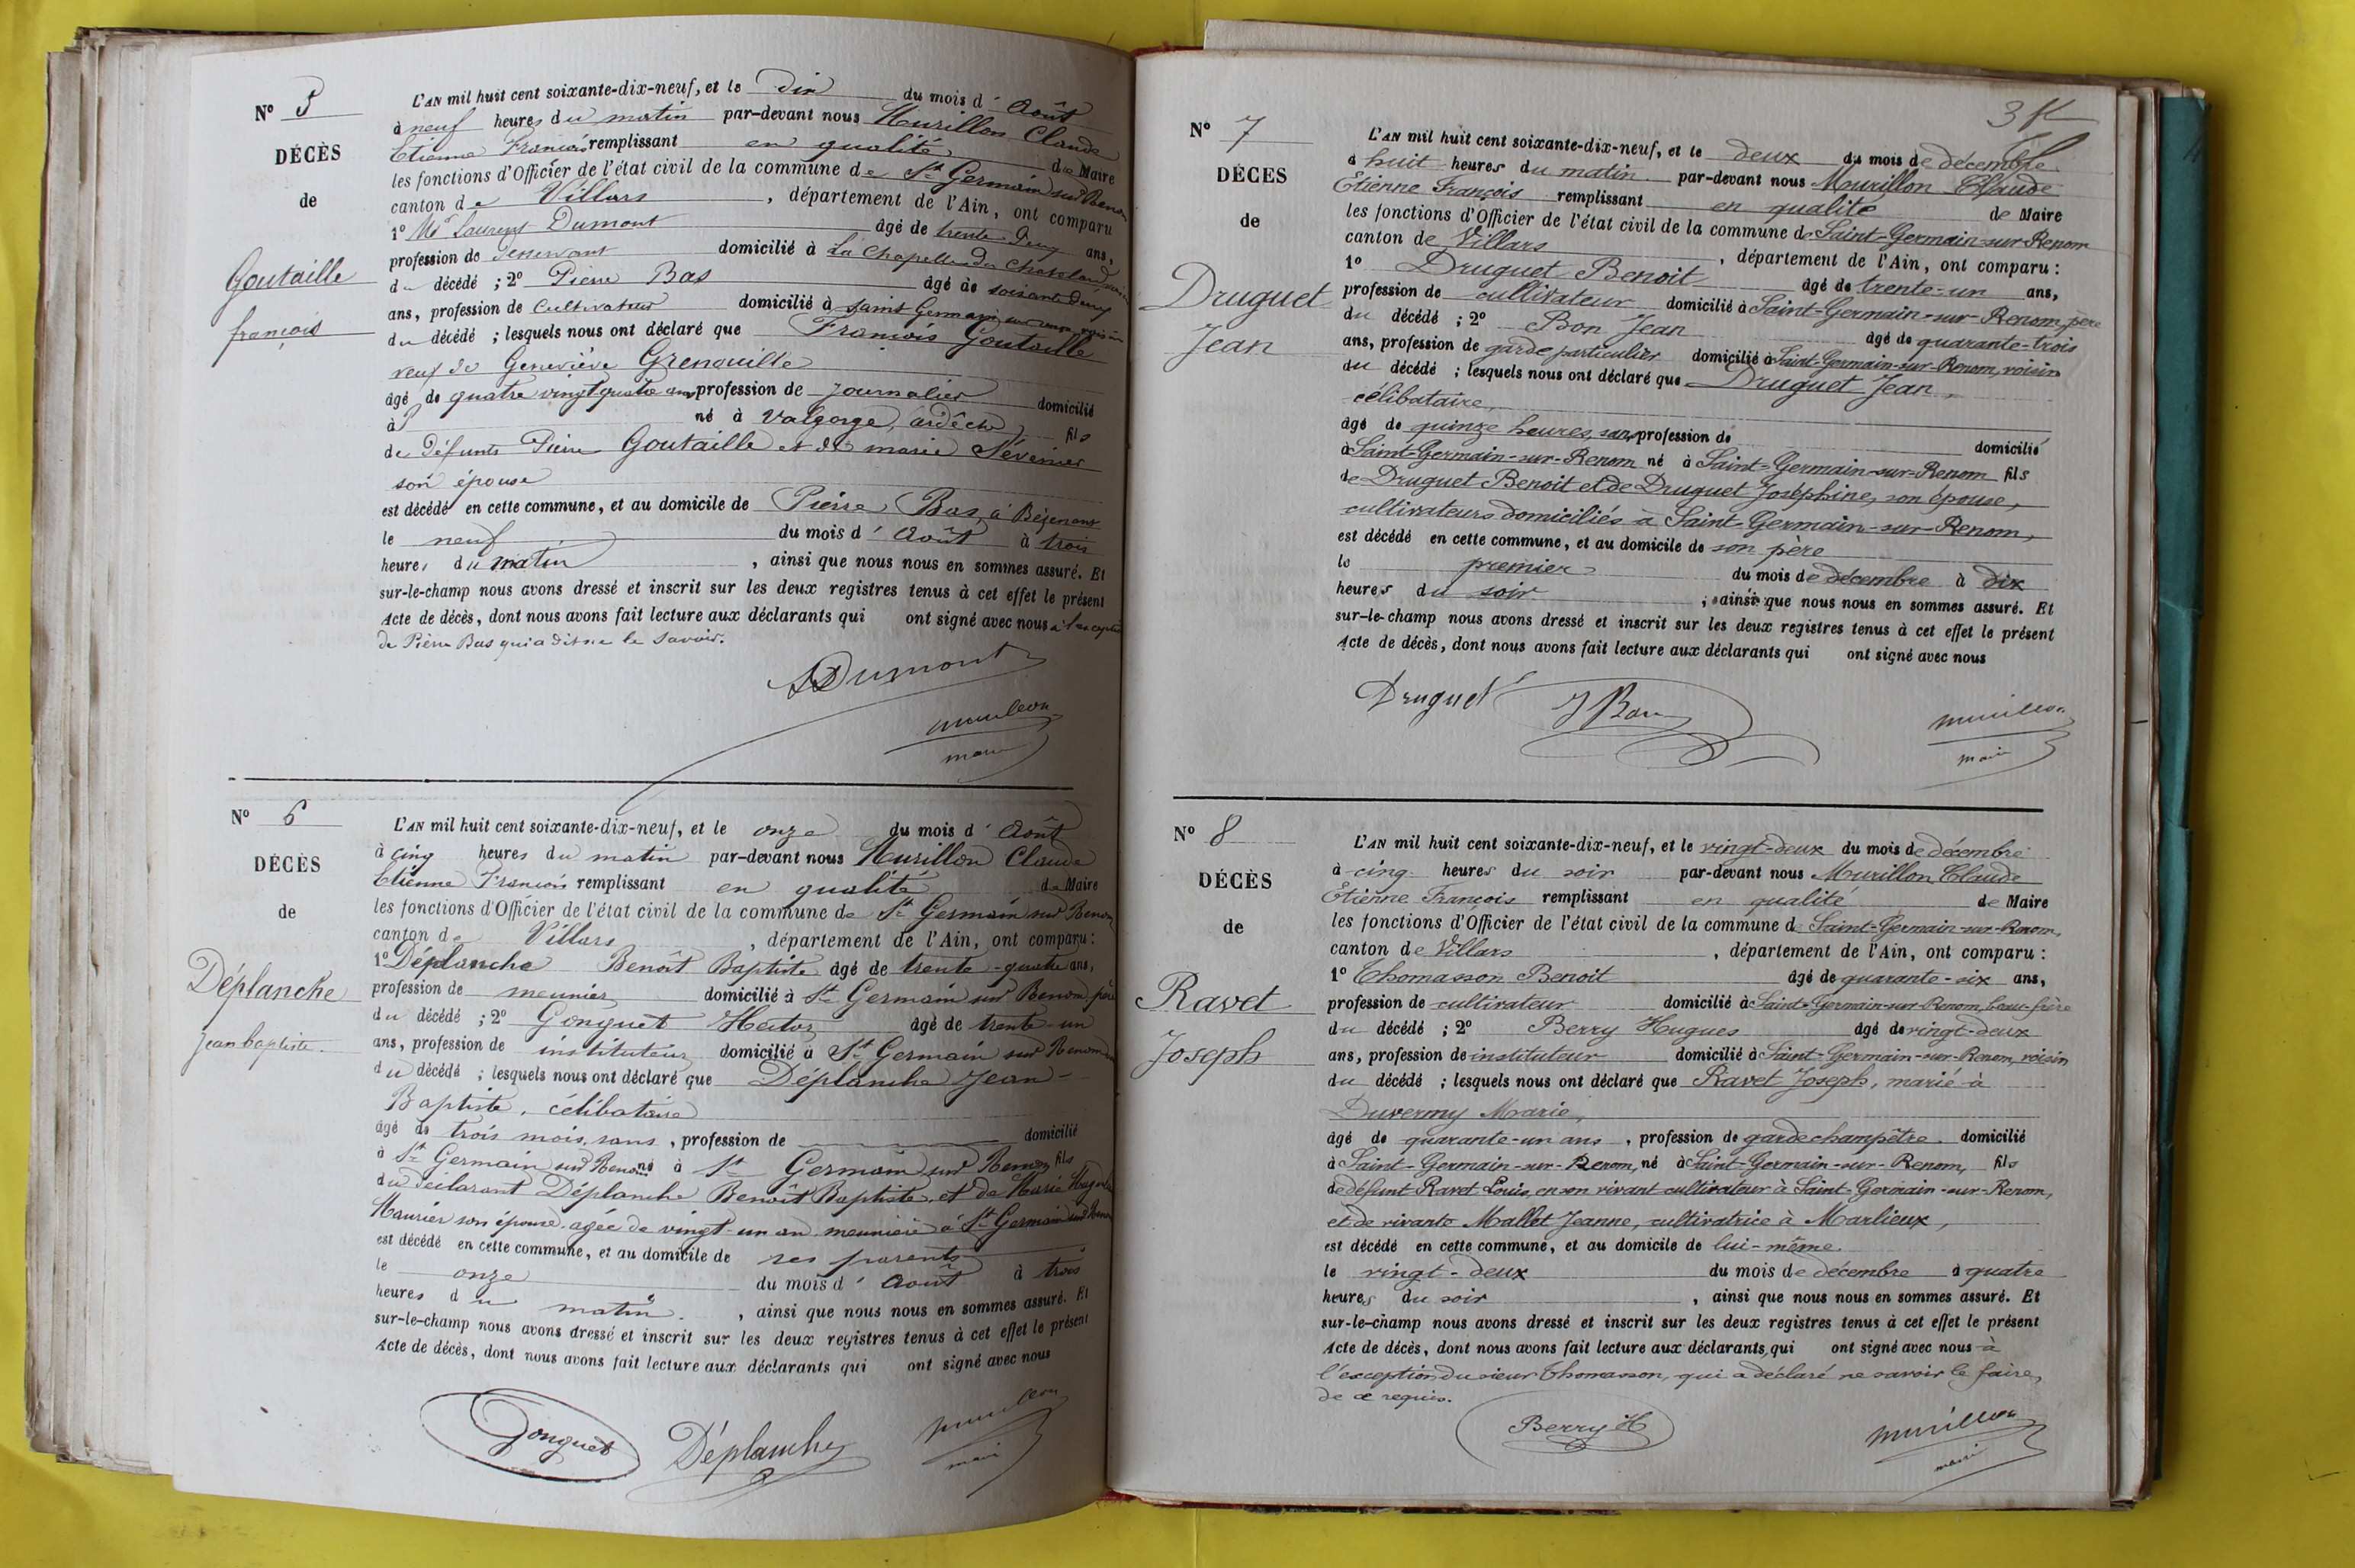 N° 5
DÉCÈS
de
Goutaille
françois
L'AN mil huit cent soixante-dix-neuf, et le dix du mois d' Août
à neuf heures du matin par-devant nous Murillon Claude
Etienne François remplissant en qualité de Maire
les fonctions d'Officier de l'état civil de la commune de St Germain sur Renom
canton de Villars , département de l'Ain, ont comparu
1° Mr Laurent Dumont âgé de trente deux ans,
profession de desservant domicilié à La Chapelle du Chatelard voisin
du décédé ; 2° Pierre Bas âgé de soixante deux
ans, profession de Cultivateur domicilié à saint Germain sur renom voisin
du décédé ; lesquels nous ont déclaré que François Goutaille
veuf de Geneviève Grenouille
âgé de quatre vingt quatre ans profession de journalier domicilié
à né à Valgorge, ardèche fils
de Défunts Pierre Goutaille et de marie Sévenier
son épouse
est décédé en cette commune, et au domicile de Pierre Bas, à Bézenans
le neuf du mois d' Août à trois
heures du matin , ainsi que nous nous en sommes assuré. Et
sur-le-champ nous avons dressé et inscrit sur les deux registres tenus à cet effet le présent
Acte de décès, dont nous avons fait lecture aux déclarants qui ont signé avec nous à l'exception
de Pierre Bas qui a dit ne le savoir.
Dumont
murillon
maire
N° 6
DÉCÈS
de
Déplanche
jean baptiste.
L'AN mil huit cent soixante-dix-neuf, et le onze du mois d' Août
à cinq heures du matin par-devant nous Murillon Claude
Etienne François remplissant en qualité de Maire
les fonctions d'Officier de l'état civil de la commune de St Germain sur Renom
canton de Villars , département de l'Ain, ont comparu :
1° Déplanche Benoît Baptiste âgé de trente-quatre ans,
profession de meunier domicilié à St Germain sur Renom père
du décédé ; 2° Gonguet Hector âgé de trente-un
ans, profession de instituteur domicilié à St Germain sur Renom
du décédé ; lesquels nous ont déclaré que Déplanche Jean-
Baptiste, célibataire
âgé de trois mois, sans , profession de domicilié
à St Germain sur Renom né à St Germain sur Renom fils
du déclarant Déplanche Benoît Baptiste, et de Marie
Maurier son épouse, agée de vingt-un an, meunière à St Germain sur Renom
est décédé en cette commune, et au domicile de ses parents
le onze du mois d' Août à trois
heures du matin. , ainsi que nous nous en sommes assuré. Et
sur-le-champ nous avons dressé et inscrit sur les deux registres tenus à cet effet le présent
Acte de décès, dont nous avons fait lecture aux déclarants qui ont signé avec nous
Gonguet
Déplanche
murillon
maire
N° 7
DÉCES
de
Druguet
Jean
L'AN mil huit cent soixante-dix-neuf, et le deux du mois de décembre
à huit heures du matin par-devant nous Murillon Claude
Etienne François remplissant en qualité de Maire
les fonctions d'Officier de l'état civil de la commune de Saint-Germain-sur-Renom
canton de Villars , département de l'Ain, ont comparu :
1° Druguet Benoit âgé de trente-un ans,
profession de cultivateur domicilié à Saint-Germain-sur-Renom, père
du décédé ; 2° Bon Jean âgé de quarante-trois
ans, profession de garde particulier domicilié à Saint-Germain-sur-Renom, voisin
du décédé ; lesquels nous ont déclaré que Druguet Jean,
célibataire,
âgé de quinze heures, sans profession de domicilié
à Saint-Germain-sur-Renom né à Saint-Germain-sur-Renom fils
de Druguet Benoit et de Druguet Joséphine, son épouse,
cultivateurs domiciliés à Saint-Germain-sur-Renom,
est décédé en cette commune, et au domicile de son père
le premier du mois de décembre à dix
heures du soir , ainsi que nous nous en sommes assuré. Et
sur-le-champ nous avons dressé et inscrit sur les deux registres tenus à cet effet le présent
Acte de décès, dont nous avons fait lecture aux déclarants qui ont signé avec nous
Druguet
J Bon
murillon
maire
N° 8
DÉCÈS
de
Ravet
Joseph
L'AN mil huit cent soixante-dix-neuf, et le vingt-deux du mois de décembre
à cinq heures du soir par-devant nous Murillon Claude
Etienne François remplissant en qualité de Maire
les fonctions d'Officier de l'état civil de la commune de Saint-Germain-sur-Renom,
canton de Villars , département de l'Ain, ont comparu :
1° Thomasson Benoit âgé de quarante-six ans,
profession de cultivateur domicilié à Saint-Germain-sur-Renom, beau-frère
du décédé ; 2° Berry Hugues âgé de vingt-deux
ans, profession de instituteur domicilié à Saint-Germain-sur-Renom, voisin
du décédé ; lesquels nous ont déclaré que Ravet Joseph, marié à
Duvermy Marie,
âgé de quarante-un ans , profession de garde champêtre. domicilié
à Saint-Germain-sur-Renom, né à Saint-Germain-sur-Renom, fils
de défunt Ravet Louis, en son vivant cultivateur à Saint-Germain-sur-Renom,
et de vivante Mallet Jeanne, cultivatrice à Marlieux,
est décédé en cette commune, et au domicile de lui-même.
le vingt-deux du mois de décembre à quatre
heures du soir , ainsi que nous nous en sommes assuré. Et
sur-le-champ nous avons dressé et inscrit sur les deux registres tenus à cet effet le présent
Acte de décès, dont nous avons fait lecture aux déclarants, qui ont signé avec nous à
l'exception du sieur Thomasson, qui a déclaré ne savoir le faire,
de ce requis.
Berry H
murillon
maire